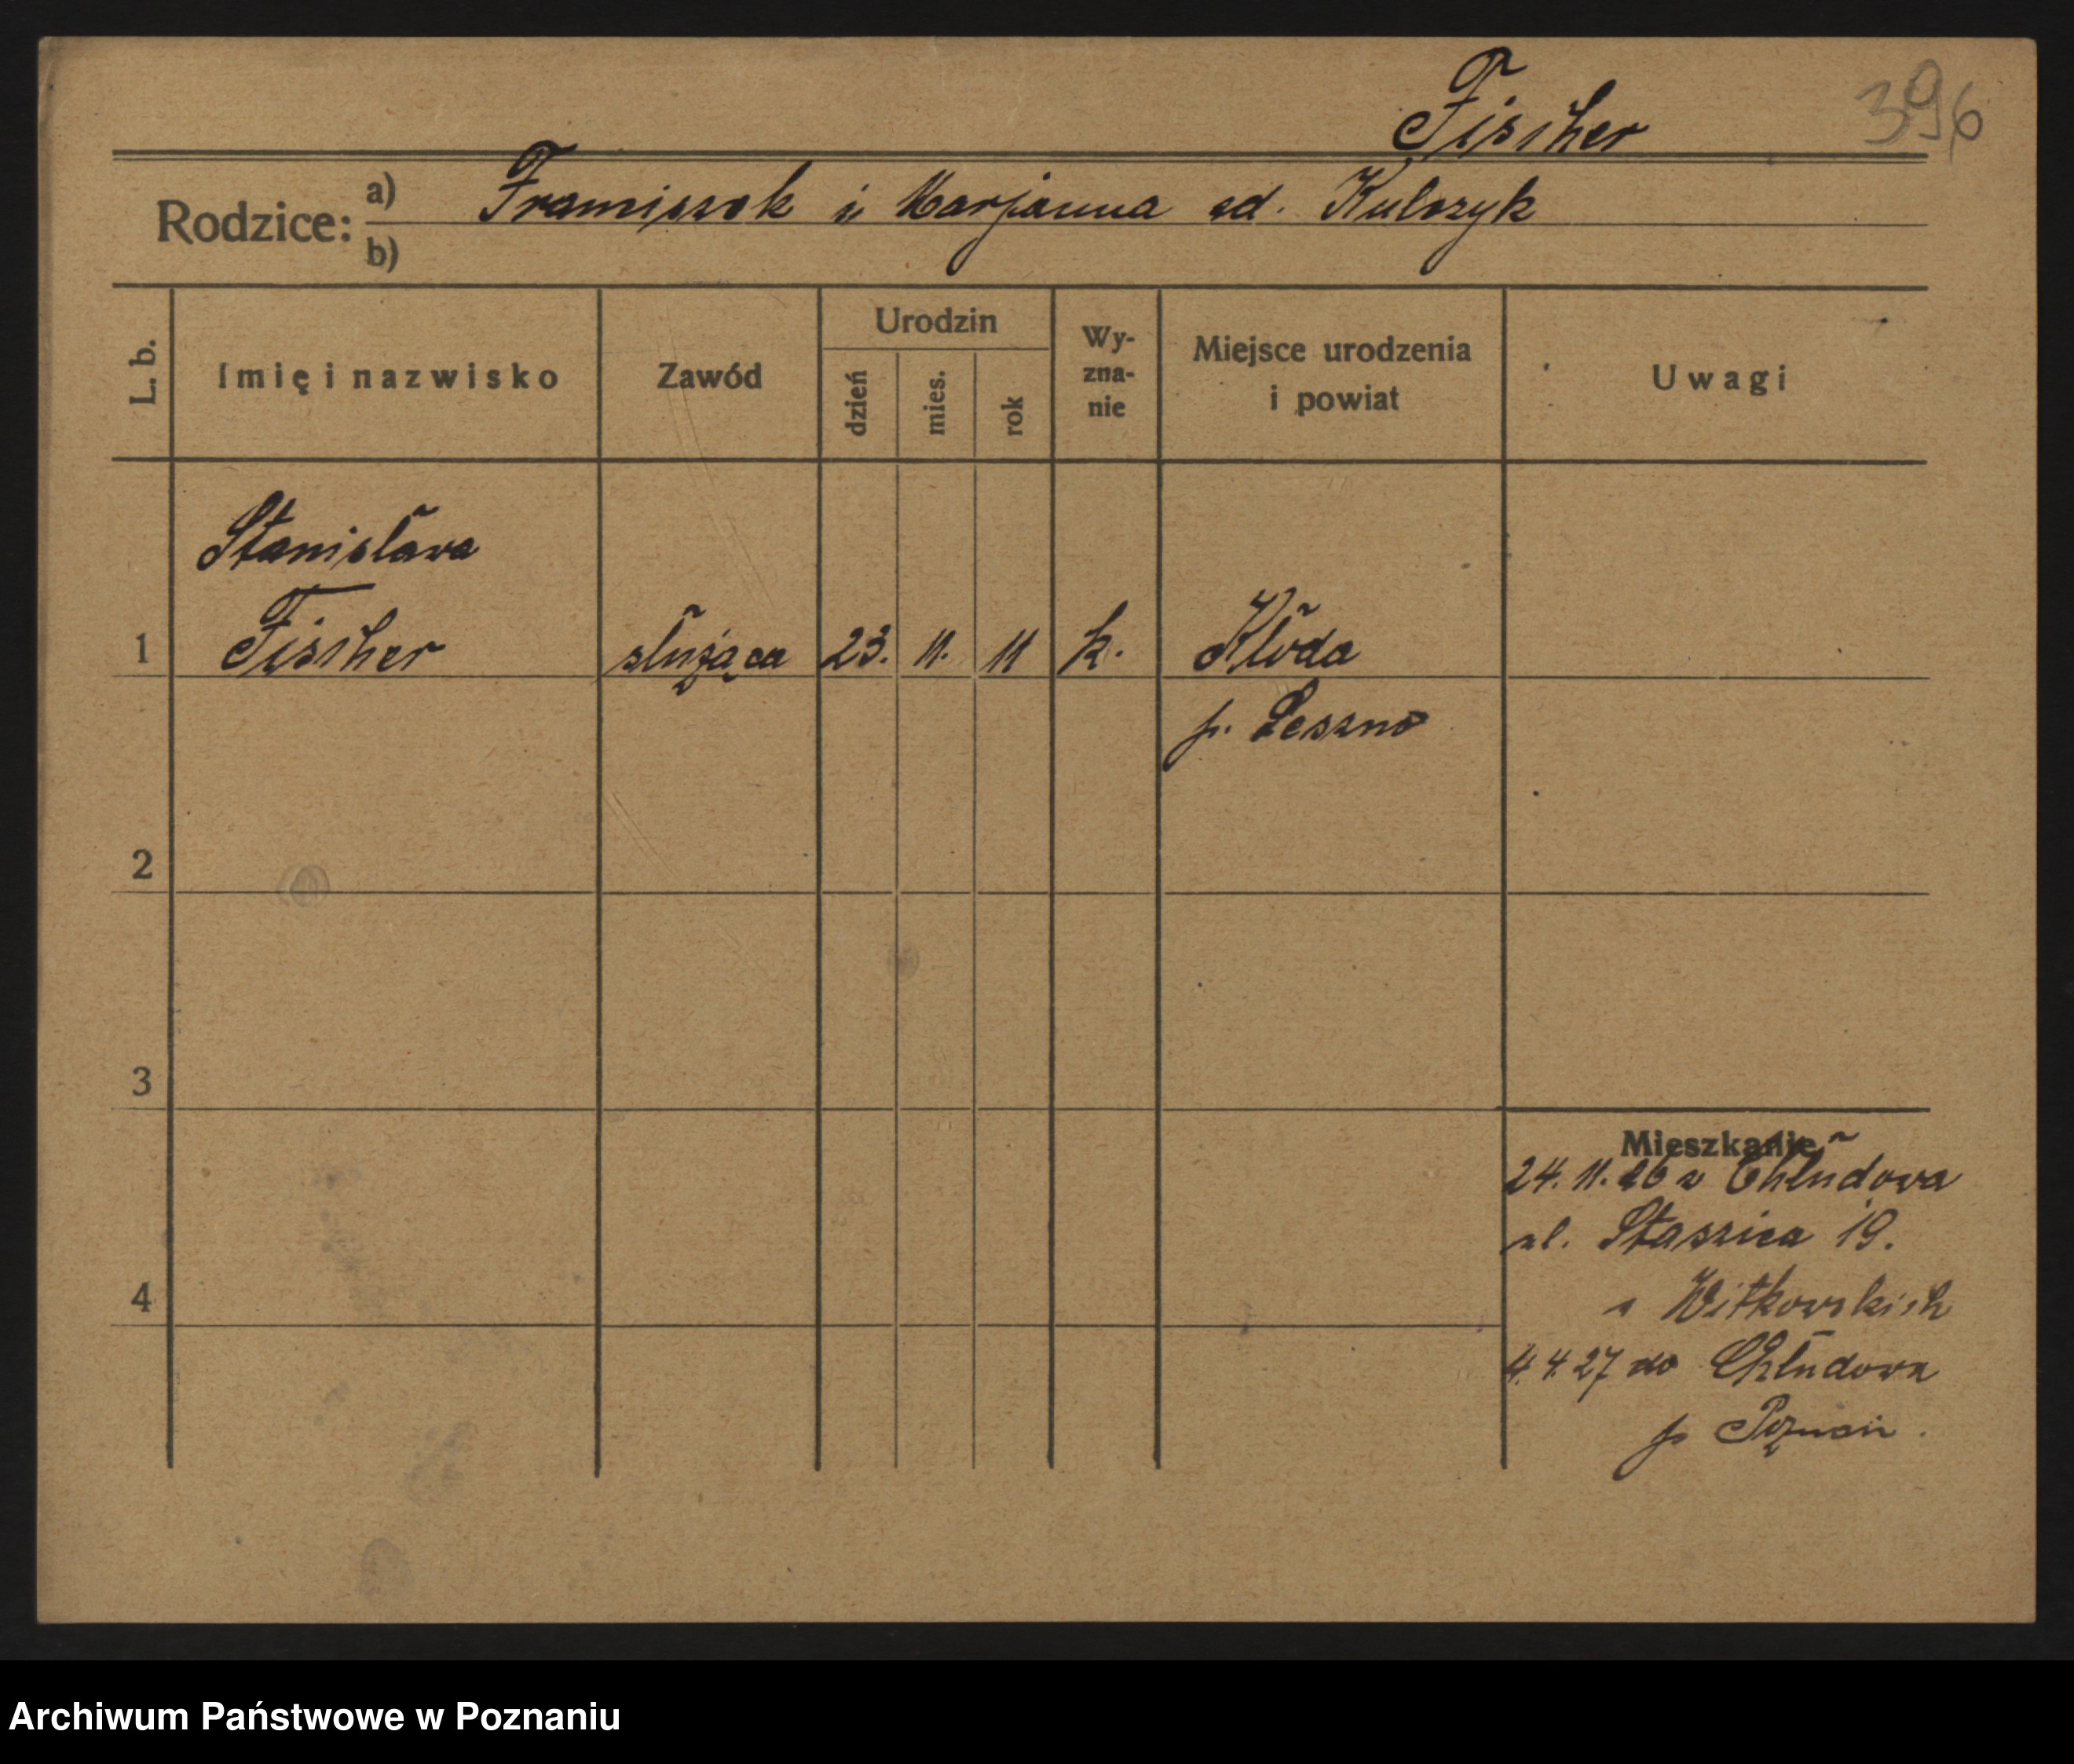 Fischer
396
Rodzice:
a) Franciszek i Marjanna zd. Kulczyk
b)
L. b.
Imię i nazwisko
Zawód
Urodzin
dzień
mies.
rok
Wy-
zna-
nie
Miejsce urodzenia
i powiat
Uwagi
Stanisława
1 Fischer służąca 23. 11. 11 k. Kłoda
p. Leszno
2
3
4
Mieszkanie
24. 11. 26 z Chludowa
ul. Staszica 19.
u Witkowskich
4. 4. 27 do Chludowa
p Poznań.
Archiwum Państwowe w Poznaniu